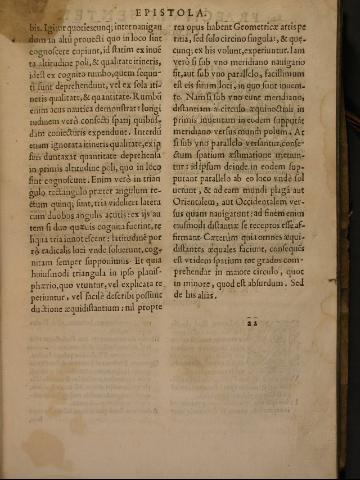 EPISTOLA.
bis. Igitur quotiescunq; internauigan
dum in altū prouecti quo in loco sint
cognoscere cupiunt, id statim ex inuē
ta altitudine poli, & qualitate itineris,
idest ex cognito rumbo, quem sequū-
tur sint deprehendunt, vel ex sola iti-
neris qualitate, & quantitate. Rumbū
enim acus nautica demonstrat: longi
tudinem verò confecti spatij quibus-
dam coniecturis expendunt. Interdū
etiam ignorata itineris qualitate, ex ip
sius duntaxat quantitate deprehensa
in primis altitudine poli, quo in loco
sint cognoscunt. Enim verò in trian
gulo rectangulo præter angulum re-
ctum quinq; sunt, tria videlicet latera
cum duobus angulis acutis: ex ijs au
tem si duo quæuis cognita fuerint, re
liqua tria innotescent: latitudinē por
rò radicalis loci vnde soluerunt, cog-
nitam semper supponimus. Et quia
huiusmodi triangula in ipso planis-
phærio, quo vtuntur, vel explicata re
periuntur, vel facilè describi possunt
ductione æquidistantum: nil propte
rea opus habent Geometricæ artis pe
ritia, sed solo circino singula, & quæ-
cunq; ex his volunt, experiuntur. Iam
verò si sub vno meridiano nauigatio
fit, aut sub vno parallelo, facillimum
est eis situm loci, in quo sunt inueni-
re. Nam si sub vno eunt meridiano,
distantiam aliter ab æquinoctiali in
primis inuentam in eodem supputāt
meridiano versus mundi polum. At
si sub vno parallelo versantur, confec-
tum spatium æstimatione metiun-
tur: id ipsum deinde in eodem sup-
putant parallelo ab eo loco vnde sol
uerunt, & ad eam mundi plagā aut
Orientalem, aut Occidentalem ver-
sus quam nauigarunt: ad finem enim
eiusmodi distantiæ se receptos esse af-
firmant. Cæterùm qui omnes æqui-
distantes æquales faciunt, consequēs
est vt idem spatium tot gradus com-
prehendat in maiore circulo, quot
in minore, quod est absurdum. Sed
de his aliàs.